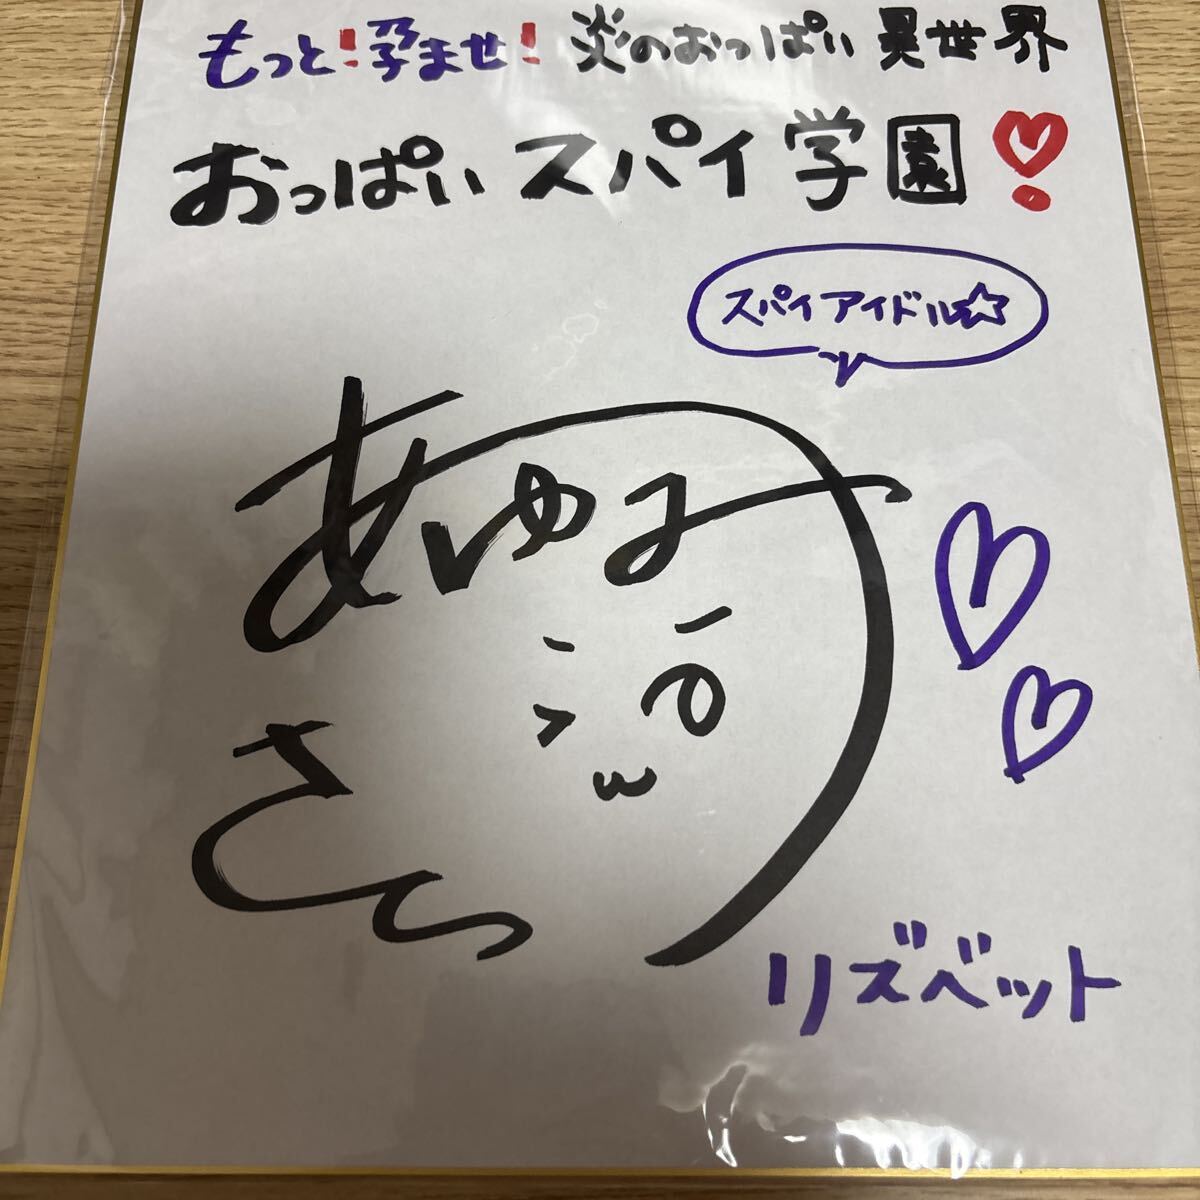 もっと!孕ませ!炎のおっぱい異世界
おっぱいスパイ学園♡!
スパイアイドル☆
あゆみ
さち
リズベット